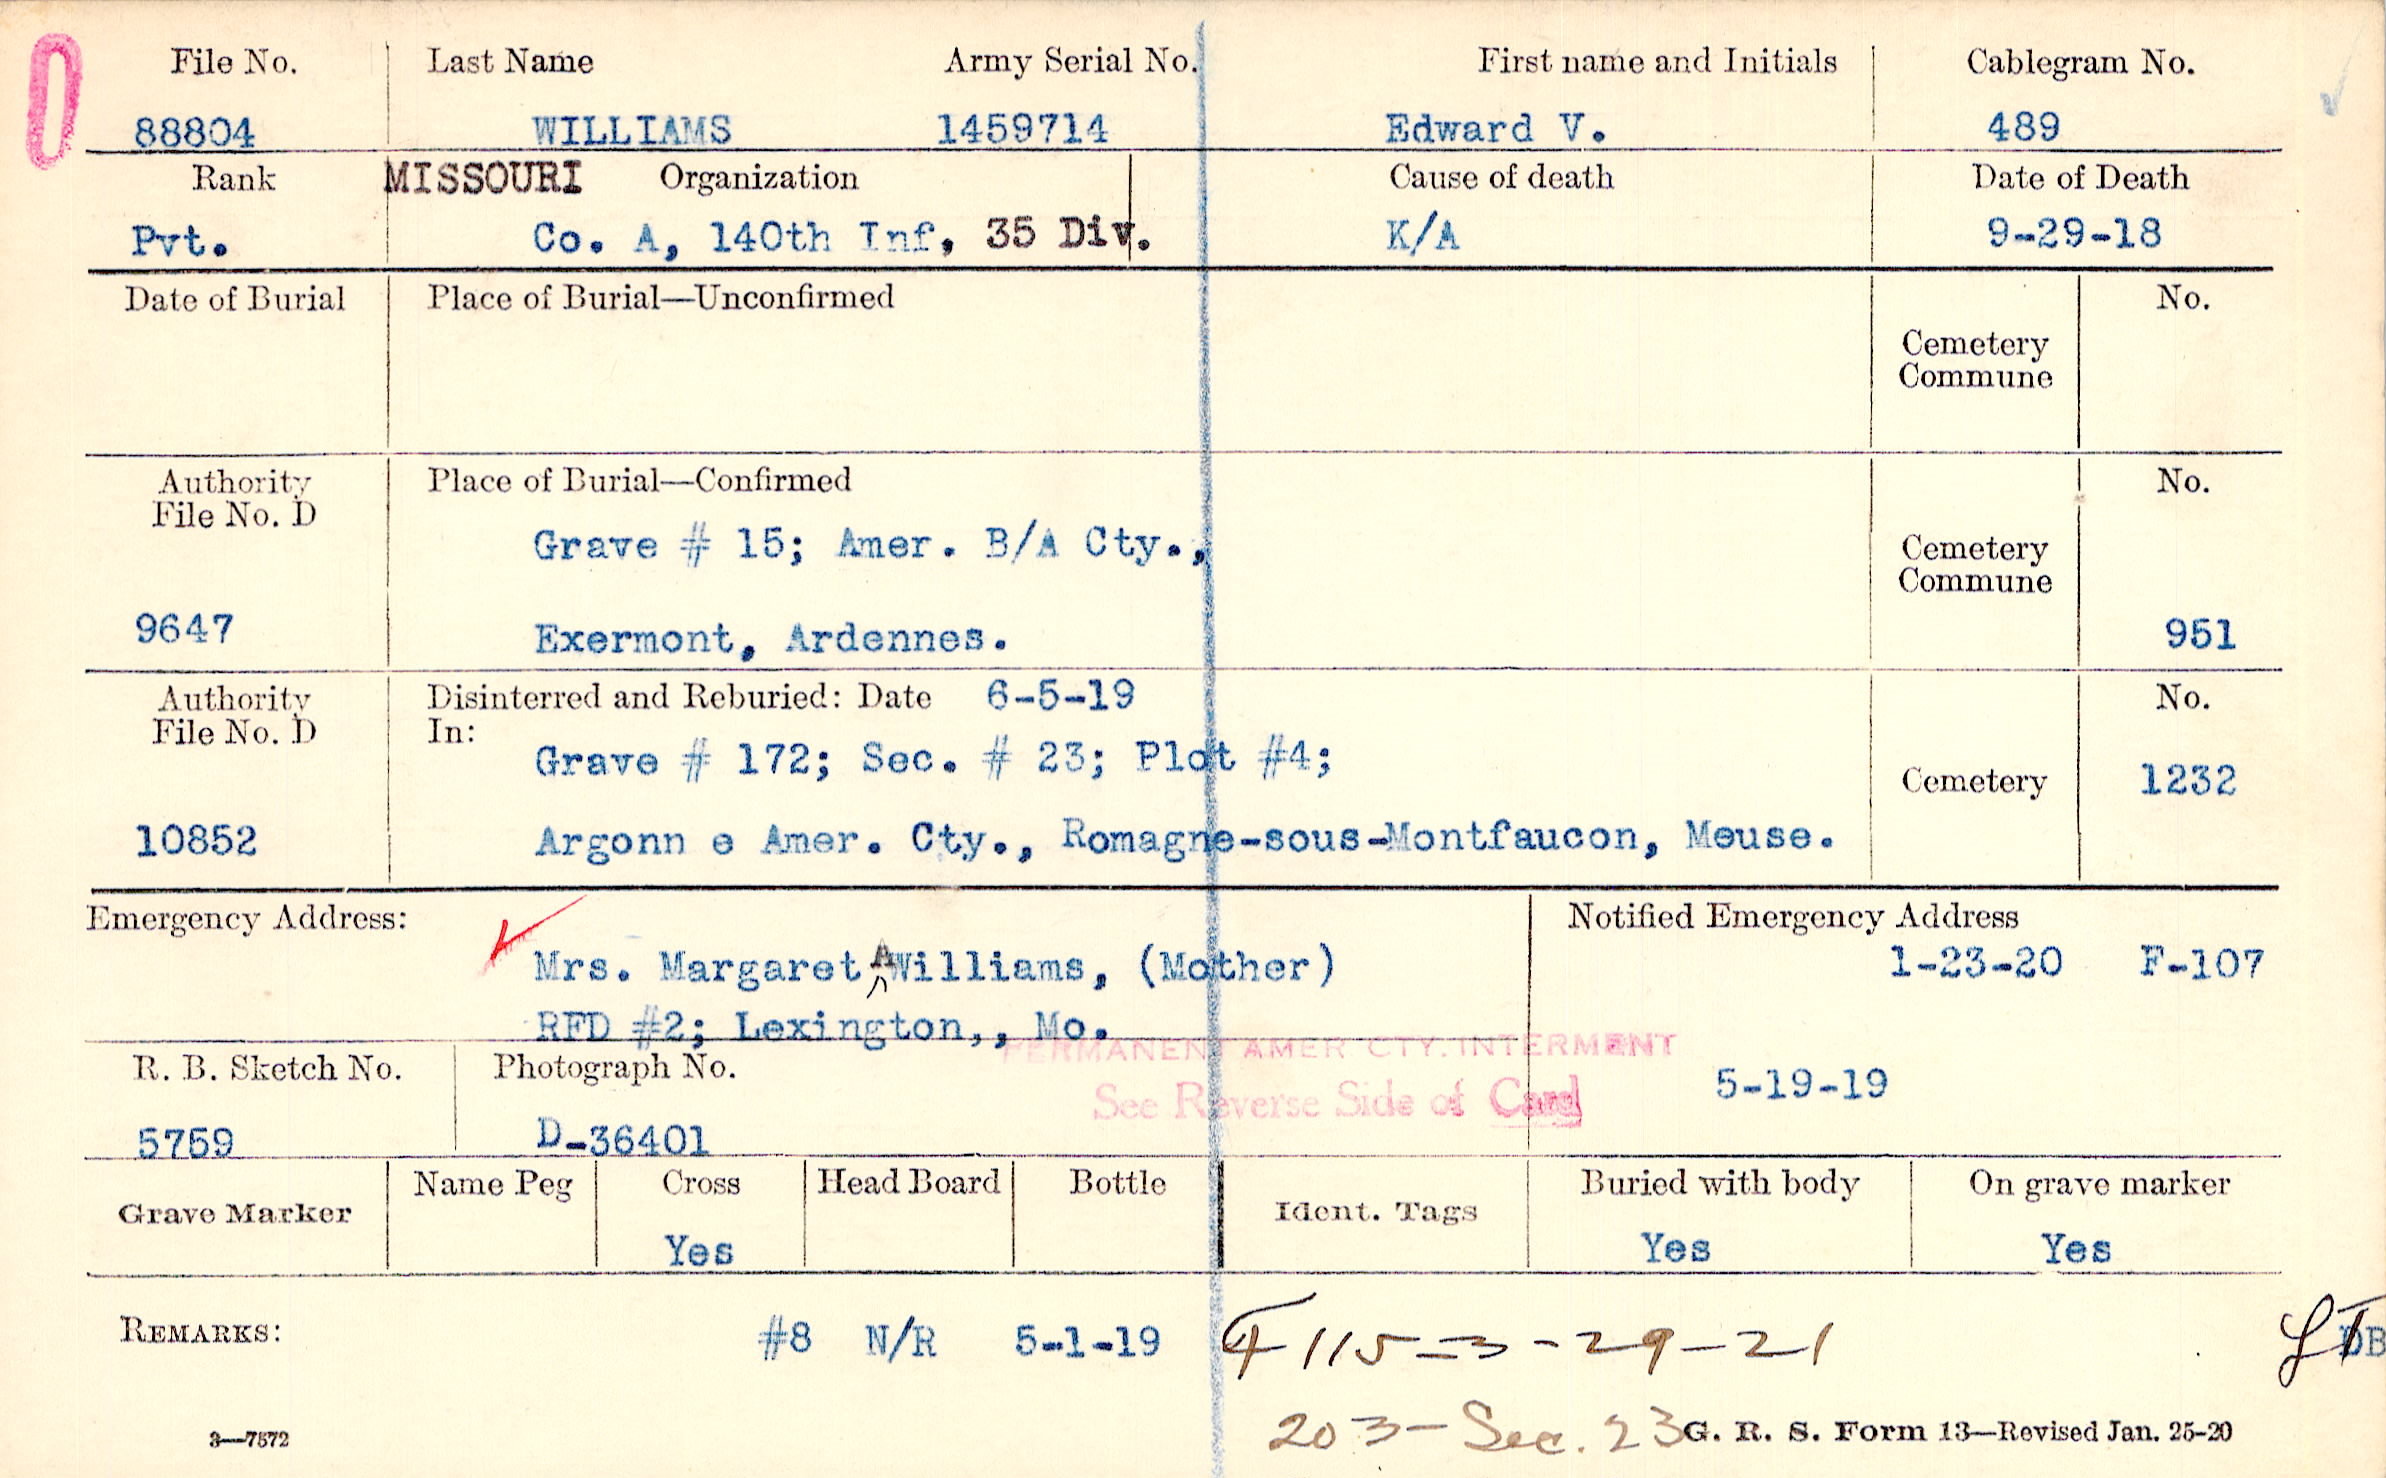 File No. Last Name Army Serial No. First name and Initials Cablegram No.
88804 WILLIAMS 1459714 Edward V. 489
Rank MISSOURI Organization Cause of death Date of Death
Pvt. Co. A, 140th Inf, 35 Div. K/A 9-29-18
Date of Burial Place of Burial—Unconfirmed No.
Cemetery
Commune
Authority Place of Burial—Confirmed No.
File No. D
Grave # 15; Amer. B/A Cty.,
Cemetery
Commune
9647 Exermont, Ardennes. 951
Authority Disinterred and Reburied: Date 6-5-19 No.
File No. D In:
Grave # 172; Sec. # 23; Plot #4;
Cemetery 1232
10852 Argonn e Amer. Cty., Romagne-sous-Montfaucon, Meuse.
Emergency Address: Notified Emergency Address
Mrs. Margaret A Williams, (Mother) 1-23-20 F-107
RFD #2; Lexington,, Mo.
PERMANENT AMER CTY. INTERMENT
R. B. Sketch No. Photograph No. 5-19-19
See Reverse Side of Card
5759 D-36401
Grave Marker Name Peg Cross Head Board Bottle Ident. Tags Buried with body On grave marker
Yes Yes Yes
REMARKS: #8 N/R 5-1-19 F 115=3-29-21 DB
203- Sec. 23
3—7572 G. R. S. Form 13—Revised Jan. 25-20